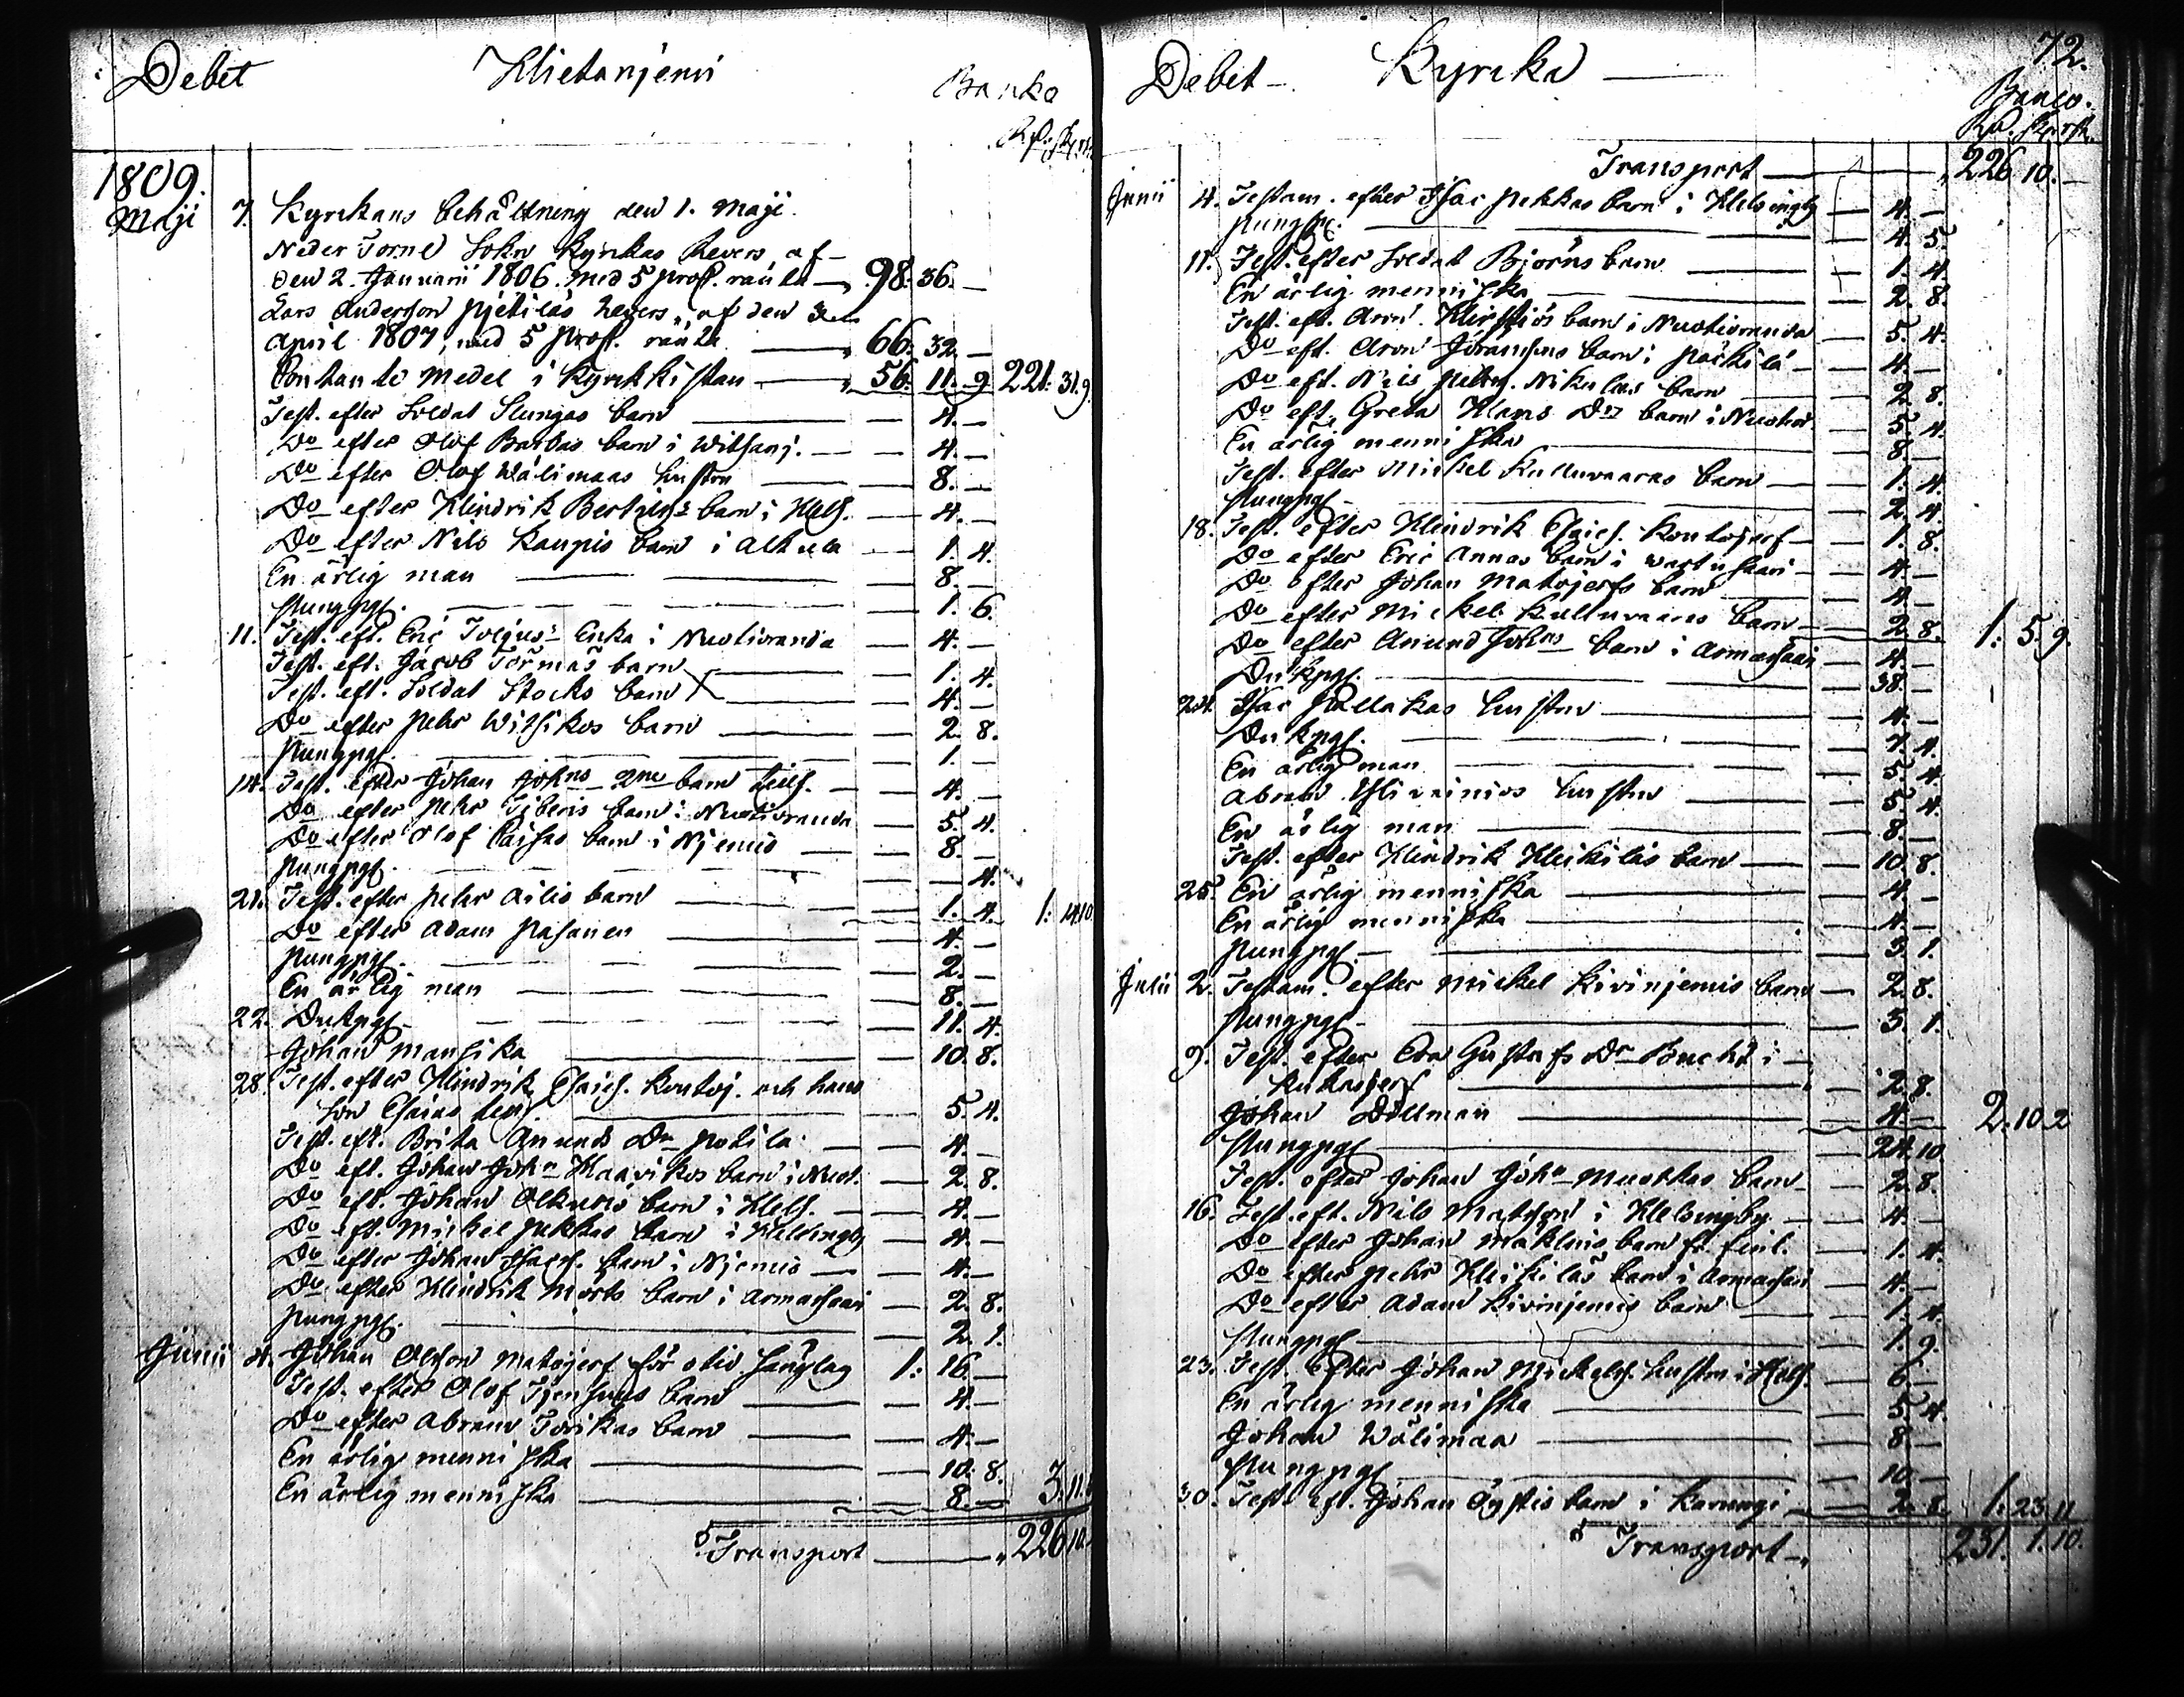 Debet Hietaniemi Banko
Rd. Sk. rst.
1809.
Maji 7. Kyrckans behållning den 1. Maji.
Neder Torneå Sokn Kyrkas Revers, af
den 2. Januarii 1806. med 5 proC. ränta — 98. 36. —
Lars Anderson Pjetiläs Revers, af den
April 1807, med 5 proC. ränta — 66. 32. —
Contante Medel i Kyrkkistan — 56. 11. 9 221. 31. 9.
Test. efter Soldat Slungas barn — 4. —
Do efter Olof Barbas barn i Witsanj. — 4. —
Do efter Olof Wälimaas hustru — 8. —
Do efter Hindrik Bertils barn i Hels. — 4. —
Do efter Nils Kaupis barn i Alkula — 1. 4.
En ärlig man — 8. —
Pungpgr. — 1. 6.
11. Test. eft. Eric Enka i Nuotioranda — 4. —
Test. eft. Jacob Törmäs barn — 1. 4.
Test. eft. Soldat Stocks barn — 4. —
Do efter Pehr Witsikos barn — 2. 8.
Pungpgr. — 1. —
14. Test. efter Johan Johns barn Hels. — 4. —
Do efter Pehr barn i Nuotioranda — 5. 4.
Do efter Olof barn i Njemis — 8. —
Pungpgr. — 4.
21. Test. efter Pehr Ailis barn — 1. 4. 1. 14. 10
Do efter Adam Pasanen — 4. —
Pungpgr. — 2. —
En ärlig man — 8. —
22. Dukpgr. — 11. 4.
Johan Mansika — 10. 8.
28. Test. efter Hindrik Esaies. Kontoj. och hans
son Esaias — 5. 4.
Test. eft. Brita Anunds Dr — 4. —
Do eft. Johan Johns Haavikos barn i Nuot. — 2. 8.
Do eft. Johan Alkunis barn i Hels. — 4. —
Do eft. Mickel Pekkas barn i Helsingby — 4. —
Do efter Johan Isacs. barn i Njemis — 4. —
Do efter Hindrik Morts barn i Armasaari — 2. 8.
Pungpgr. — 2. 1.
Junii 4. Johan Olsson Matojerf för otid sänglag 1: 16. —
Test. efter Olof barn — 4. —
Do efter Abram barn — 4. —
En ärlig menniska — 10. 8.
En ärlig menniska — 8. — 3. 11.
Transport — 226. 10.
72.
Debet — Kyrcka —
Banco.
Rd. Sk. rst.
Transport — 226 10. —
Junii 4. Testam. efter Isac Pekkas barn i Helsingby — 4. —
Pungpgr. — 4. 5.
11. Test. efter Soldat Björns barn — 1. 4.
En ärlig menniska — 2. 8.
Test. eft. Aron barn i Nuotioranda — 5. 4.
Do eft. Aron Göranssons barn i Päckilä — 4. —
Do eft. Nils Nikulas barn — 2. 8.
Do eft. Greta Hans Drs barn i — 5. 4.
En ärlig menniska — 8. —
Test. efter Mickel Kulluvaaras barn — 1. 4.
Pungpgr. — 2. 4.
18. Test. efter Hindrik Esaies. Kontojerf — 1. 8.
Do efter Eric Annas barn i — 4. —
Do efter Johan Matojerfs barn — 4. —
Do efter Mickel Kulluvaaras barn — 2. 8. 1. 5. 9.
Do efter Anund Johns barn i Armasaari — 4. —
Dukpgr. — 38. —
24. Isac Pallakas hustru — 4. —
Dukpgr. — 7. 4.
En ärlig man — 5. 4.
Abram hustru — 5. 4.
En ärlig man — 8. —
Test. efter Hindrik Heikiläs barn — 10. 8.
25. En ärlig menniska — 4. —
En ärlig menniska — 4. —
Pungpgr. — 3. 1.
Julii 2. Testam. efter Mickel Kivinjemis barn — 2. 8.
Pungpgr. — 3. 1.
9. Test. efter Eva Gustafs Dr Bucht i
Kukasjerf — 2. 8.
Johan Dillman — 4. — 2. 10. 2
Pungpgr. — 24. 10
Test. efter Johan Johns Muotkas barn — 2. 8.
16. Test. eft. Nils Matsson i Helsingby — 4. —
Do efter Johan barn fr. Finl. — 1. 4.
Do efter Pehr Heikiläs barn i Armasaari — 4. —
Do efter Adam Kivinjemis barn — 1. 4.
Pungpgr. — 1. 9.
23. Test. efter Johan Mickels. hustru i Hels. — 6. —
En ärlig menniska — 5. 4.
Johan Wälimaa — 8. —
Pungpgr. — 10. —
30. Test. eft. Johan barn i Karungi — 2. 8. 1. 23. 11
Transport — 231. 1. 10.